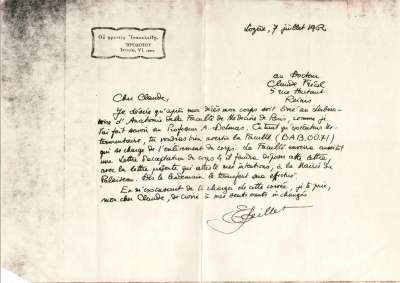 Lozère, 7 juillet 1962
au Docteur
Claude
5 rue
Reims
Cher Claude,
Je désire qu'après mon décès mon corps soit livré au Labora-
toire d'Anatomie de la Faculté de Médecine de Paris, comme je
l'ai fait savoir au Professeur A. Delmas. En tant qu'exécuteur tes-
tamentaire, tu voudras bien avertir la Faculté (DAN.00.71)
qui se charge de l'enlèvement du corps. La Faculté enverra aussitôt
une Lettre d'acceptation de corps & il faudra déposer cette lettre,
avec la lettre présente qui atteste mes intentions, à la Mairie de
Palaiseau. Dès le lendemain le transfert sera effectué.
En m'excusant de te charger de cette corvée, je te prie,
mon cher Claude, de croire à mes sentiments inchangés